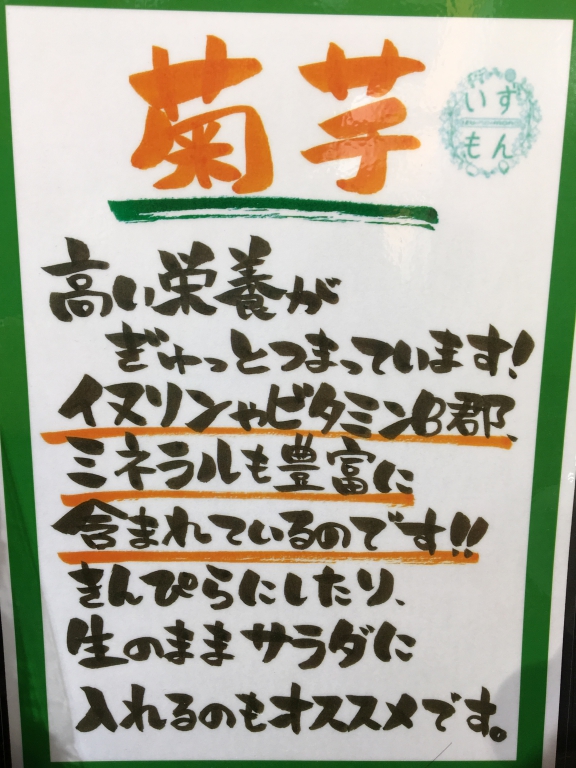 菊芋
いず
もん
高い栄養が
ぎゅっとつまっています!
イヌリンやビタミンB郡、
ミネラルも豊富に
含まれているのです!!
きんぴらにしたり、
生のままサラダに
入れるのもオススメです。